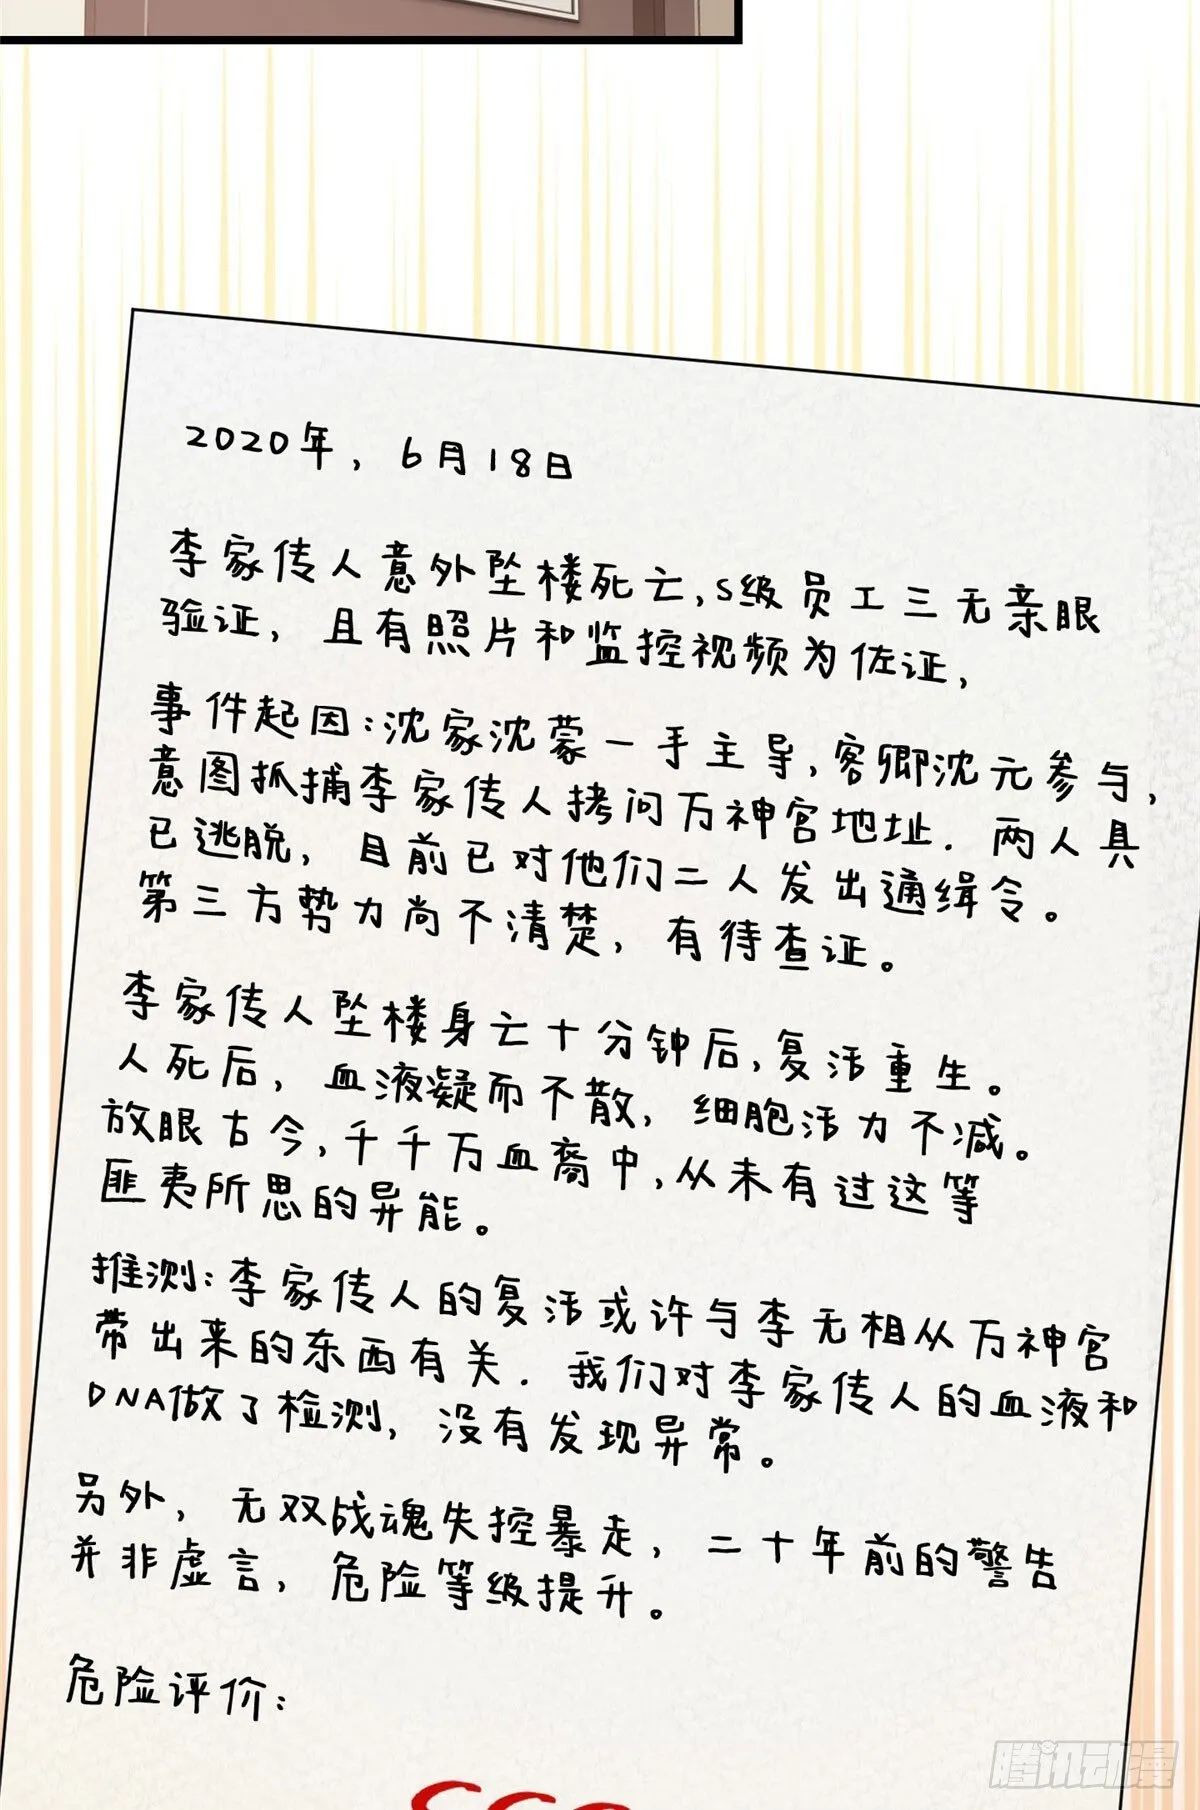 2020年，6月18日
李家传人意外坠楼死亡,S级员工三无亲眼
验证，且有照片和监控视频为佐证，
事件起因:沈家沈蒙一手主导,客卿沈元参与,
意图抓捕李家传人拷问万神宫地址.两人具
已逃脱，目前已对他们二人发出通缉令。
第三方势力尚不清楚，有待查证。
李家传人坠楼身亡十分钟后,复活重生。
人死后，血液凝而不散，细胞活力不减。
放眼古今,千千万血裔中,从未有过这等
匪夷所思的异能。
推测:李家传人的复活或许与李无相从万神宫
带出来的东西有关.我们对李家传人的血液和
DNA做了检测，没有发现异常。
另外，无双战魂失控暴走，二十年前的警告
并非虚言，危险等级提升。
危险评价:
腾讯动漫